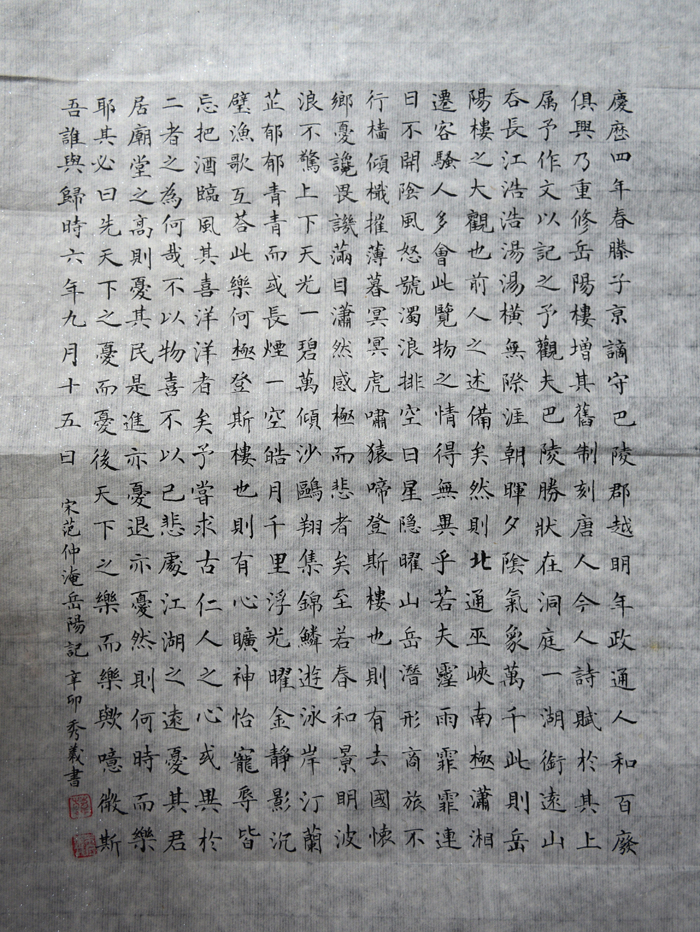 慶曆四年春滕子京謫守巴陵郡越明年政通人和百廢
俱興乃重修岳陽樓增其舊制刻唐人今人詩賦於其上
属予作文以記之予觀夫巴陵勝狀在洞庭一湖銜遠山
吞長江浩浩湯湯橫無際涯朝暉夕陰氣象萬千此則岳
陽樓之大觀也前人之述備矣然則北通巫峽南極瀟湘
遷客騷人多會此覽物之情得無異乎若夫霪雨霏霏連
日不開陰風怒號濁浪排空日星隐曜山岳潛形商旅不
行檣傾檝摧薄暮冥冥虎嘯猿啼登斯樓也則有去國懷
鄉憂讒畏譏滿目瀟然感極而悲者矣至若春和景明波
浪不驚上下天光一碧萬傾沙鷗翔集錦鱗遊泳岸汀蘭
芷郁郁青青而或長煙一空皓月千里浮光曜金靜影沉
璧漁歌互荅此樂何極登斯樓也則有心曠神怡寵辱皆
忘把酒臨風其喜洋洋者矣予嘗求古仁人之心或異於
二者之為何哉不以物喜不以己悲處江湖之遠憂其君
居廟堂之高則憂其民是進亦憂退亦憂然則何時而樂
耶其必曰先天下之憂而憂後天下之樂而樂歟噫微斯
吾誰與歸時六年九月十五日
宋范仲淹岳陽記辛卯秀義書